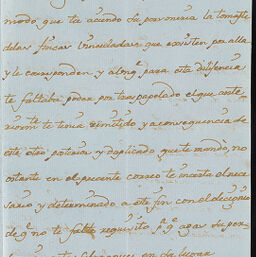 modo que tu acindo su porsonsia la tomaste
delas fincas Vinculadas que existen por alla
y le corresponden y alonq.e para esta dilixencia
te faltaba poder por tras papelado el que ante
riorm.te te tenia remitido y aconsequencia de
este otro potexion y duplicado que te mando, no
ostante en el presente correo te incerto el nece
sario y determinado a este fin con el designio
de q.e no te falte requisito p.a q.e agas su per